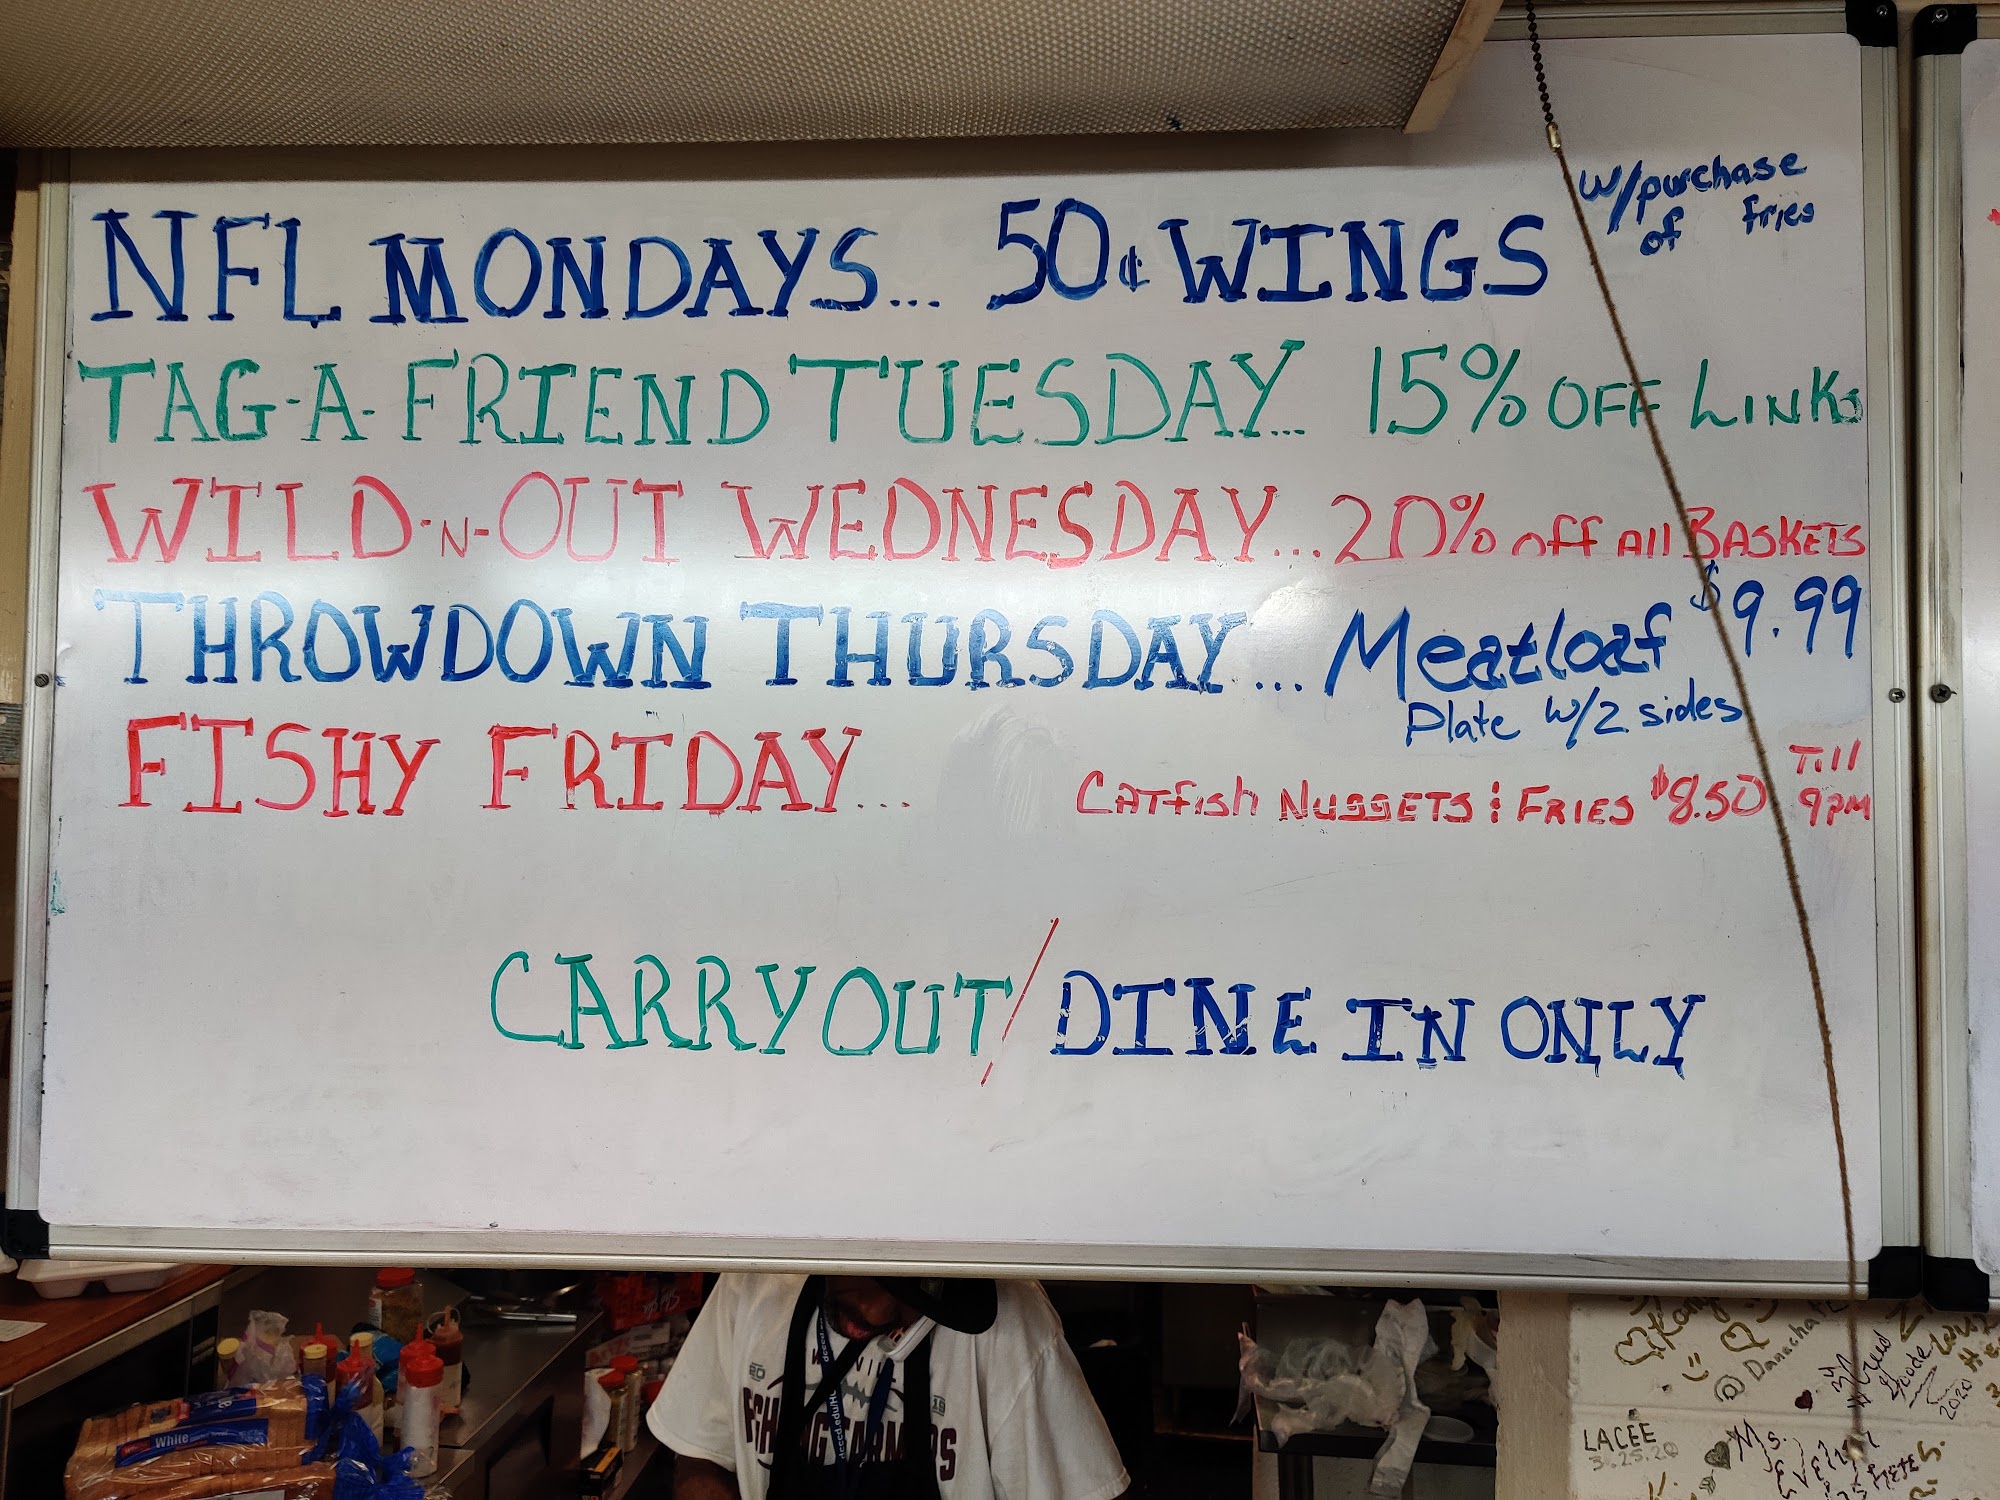 NFL MONDAYS... 50¢ WINGS w/purchase of fries
TAG-A-FRIEND TUESDAY... 15% OFF LINKS
WILD-N-OUT WEDNESDAY... 20% off All BASKETS
THROWDOWN THURSDAY... Meatloaf $9.99
Plate w/2 sides
FISHY FRIDAY... CATfish NUGGETS & FRIES $8.50 Till 9PM
CARRYOUT/DINE IN ONLY
White
dcccd.edu/
20
19
LACEE
3.25.20
2020
Ms.